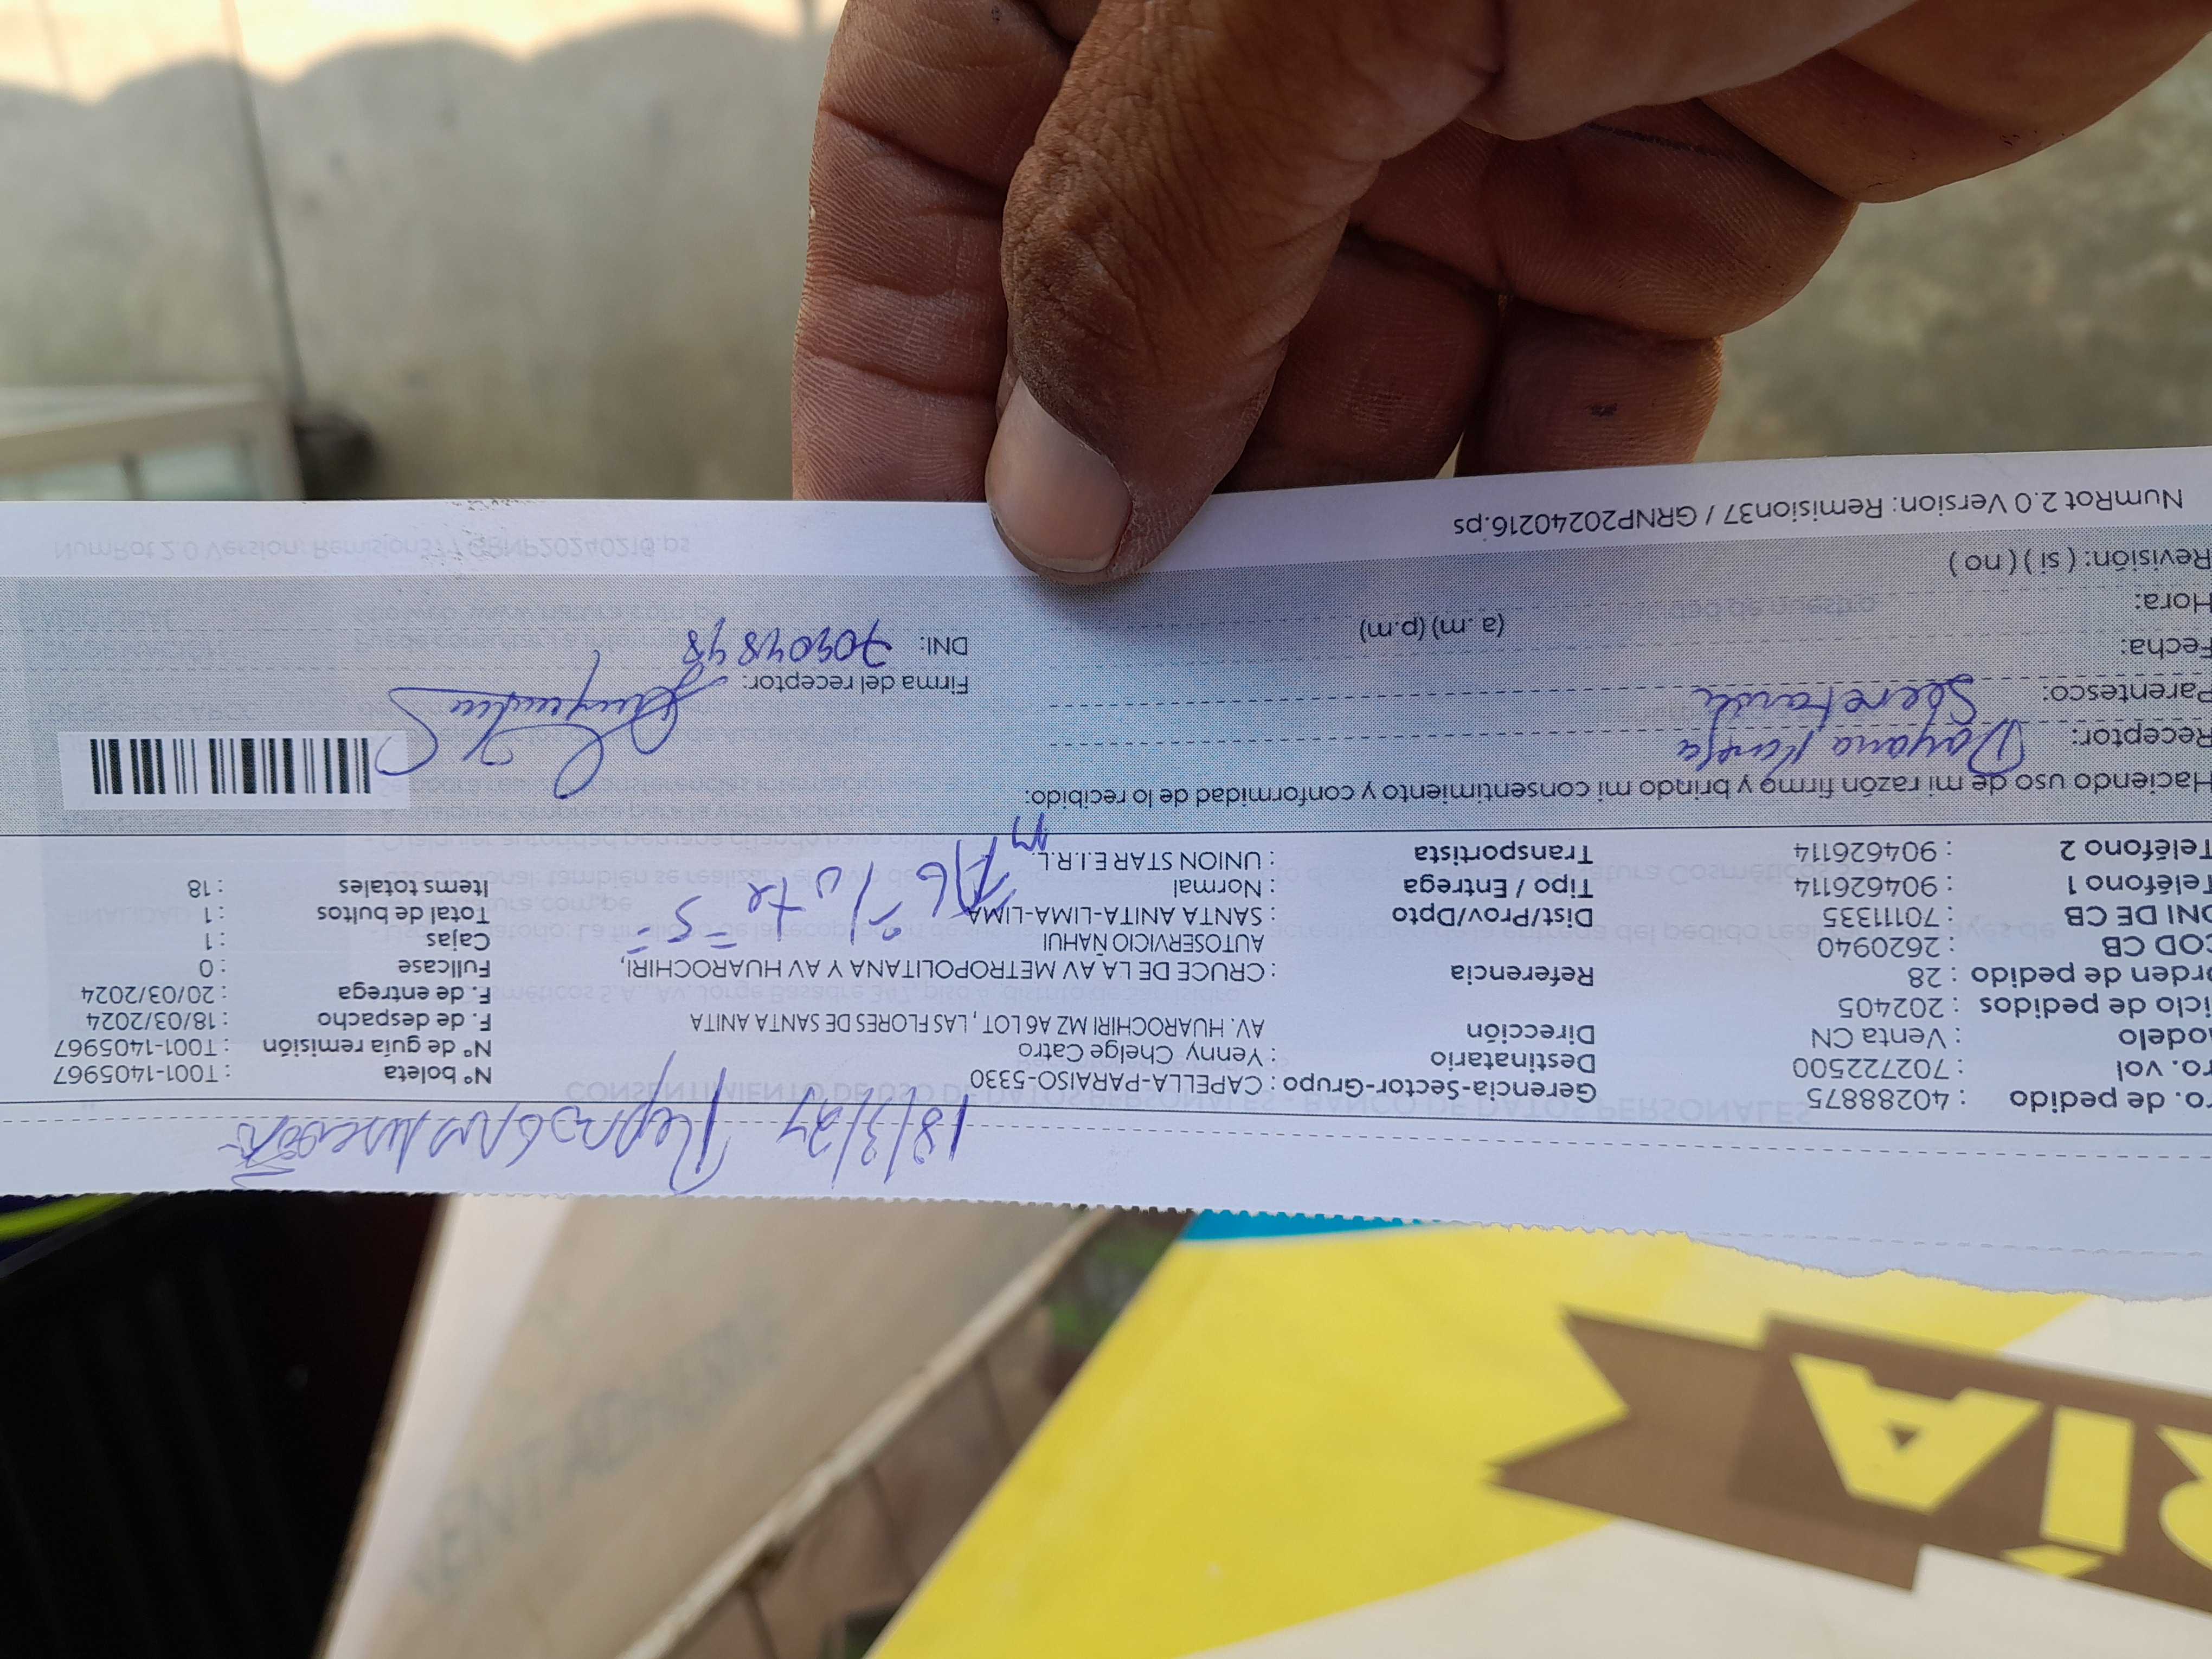 18/3/24
ro. de pedido : 40288875 Gerencia-Sector-Grupo : CAPELLA-PARAISO-5330 Nº boleta : T001-1405967
ro. vol : 702722500 Destinatario : Yenny Chelge Catro Nº de guía remisión : T001-1405967
odelo : Venta CN Dirección AV. HUAROCHIRI MZ A6 LOT , LAS FLORES DE SANTA ANITA F. de despacho : 18/03/2024
iclo de pedidos : 202405 F. de entrega : 20/03/2024
rden de pedido : 28 Referencia : CRUCE DE LA AV METROPOLITANA Y AV HUAROCHIRI, Fullcase : 0
COD CB : 2620940 AUTOSERVICIO ÑAHUI Cajas : 1
DNI DE CB : 70111335 Dist/Prov/Dpto : SANTA ANITA-LIMA-LIMA Total de bultos : 1
Teléfono 1 : 904626114 Tipo / Entrega : Normal Items totales : 18
Teléfono 2 : 904626114 Transportista : UNION STAR E.I.R.L.
M A6 lote = 5 =
Haciendo uso de mi razón firmo y brindo mi consentimiento y conformidad de lo recibido:
Receptor: Dayana
Parentesco: Secretaria Firma del receptor:
Fecha: DNI: 70904848
Hora: (a .m) (p.m)
Revisión: ( si ) ( no )
NumRot 2.0 Version: Remision37 / GRNP20240216.ps
RÍA